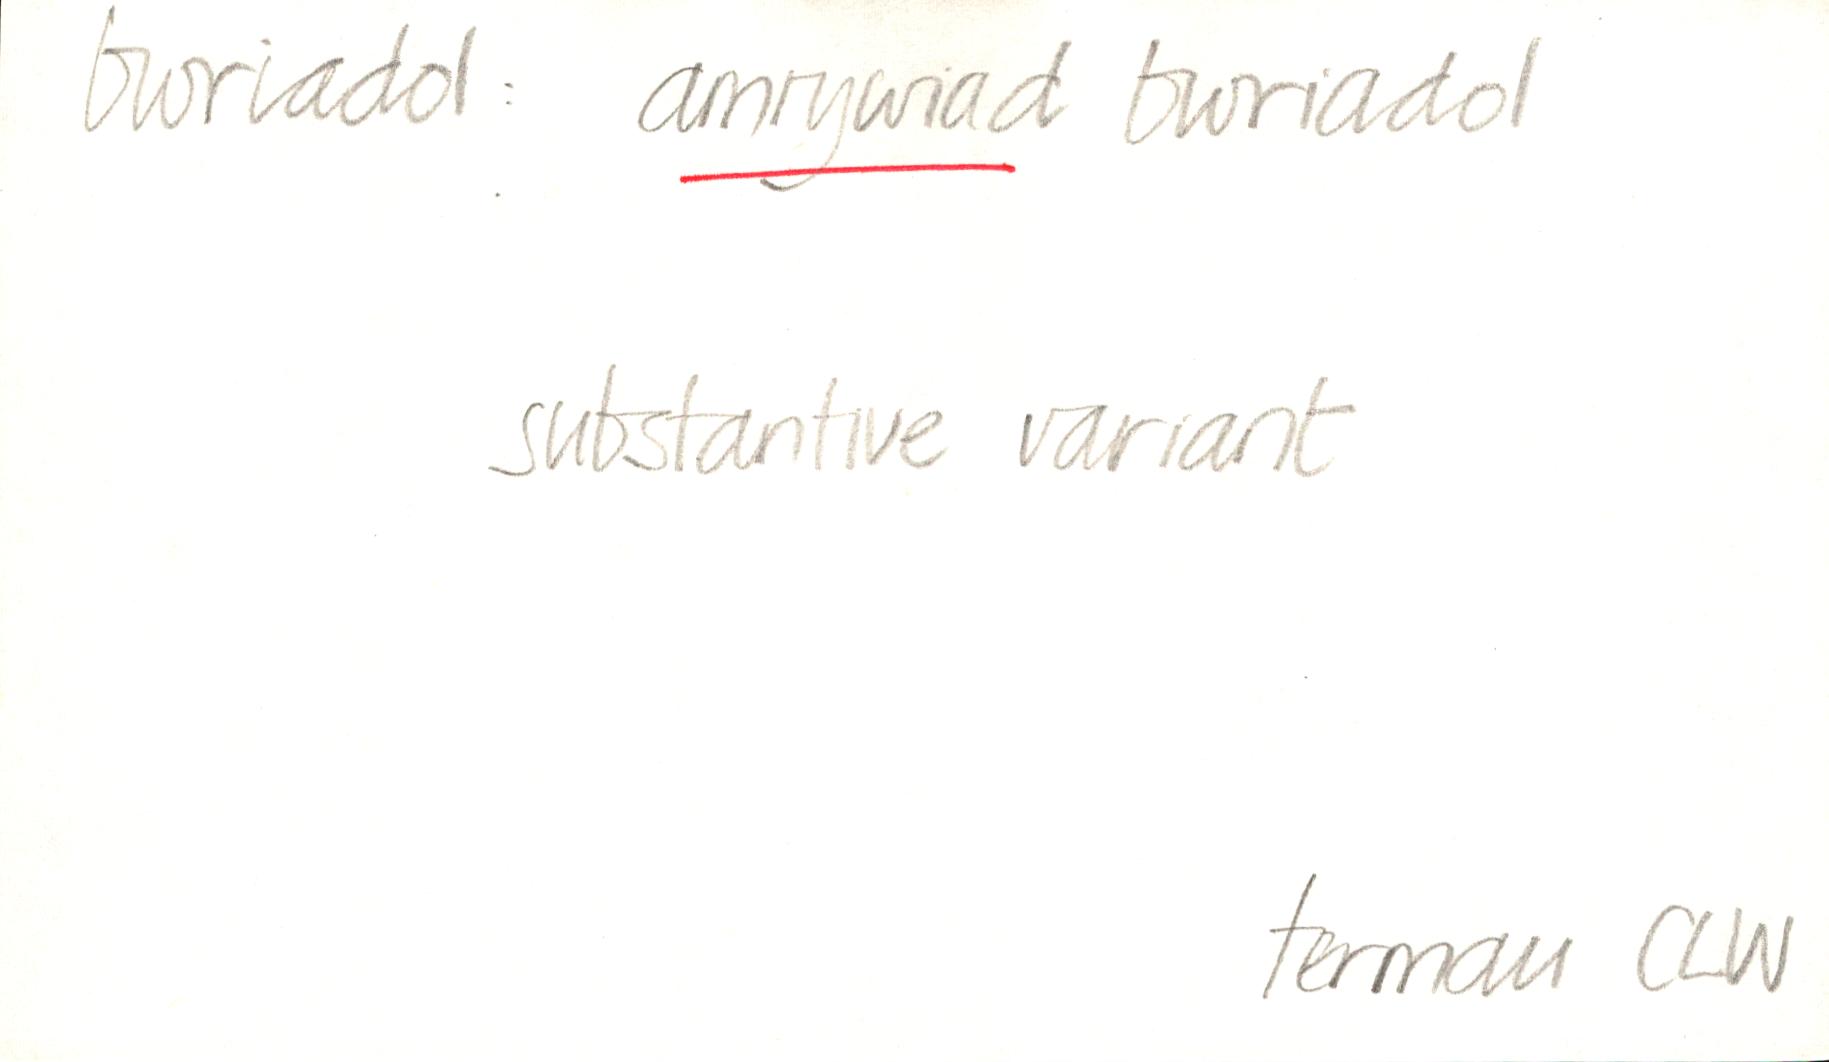 bwriadol: amrywiad bwriadol
substantive variant
termau CLW